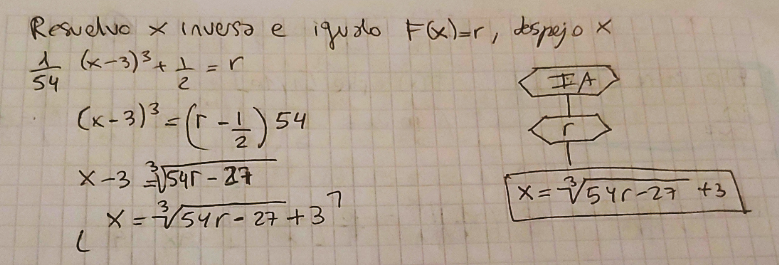 Resuelvo x inversa e igualo F(x)=r, despejo x
1/54 (x-3)³ + 1/2 = r
(x-3)³ = (r - 1/2) 54
x-3 = ∛(54r-27)
x = ∛(54r-27) + 3
IA
r
x = ∛(54r-27) + 3